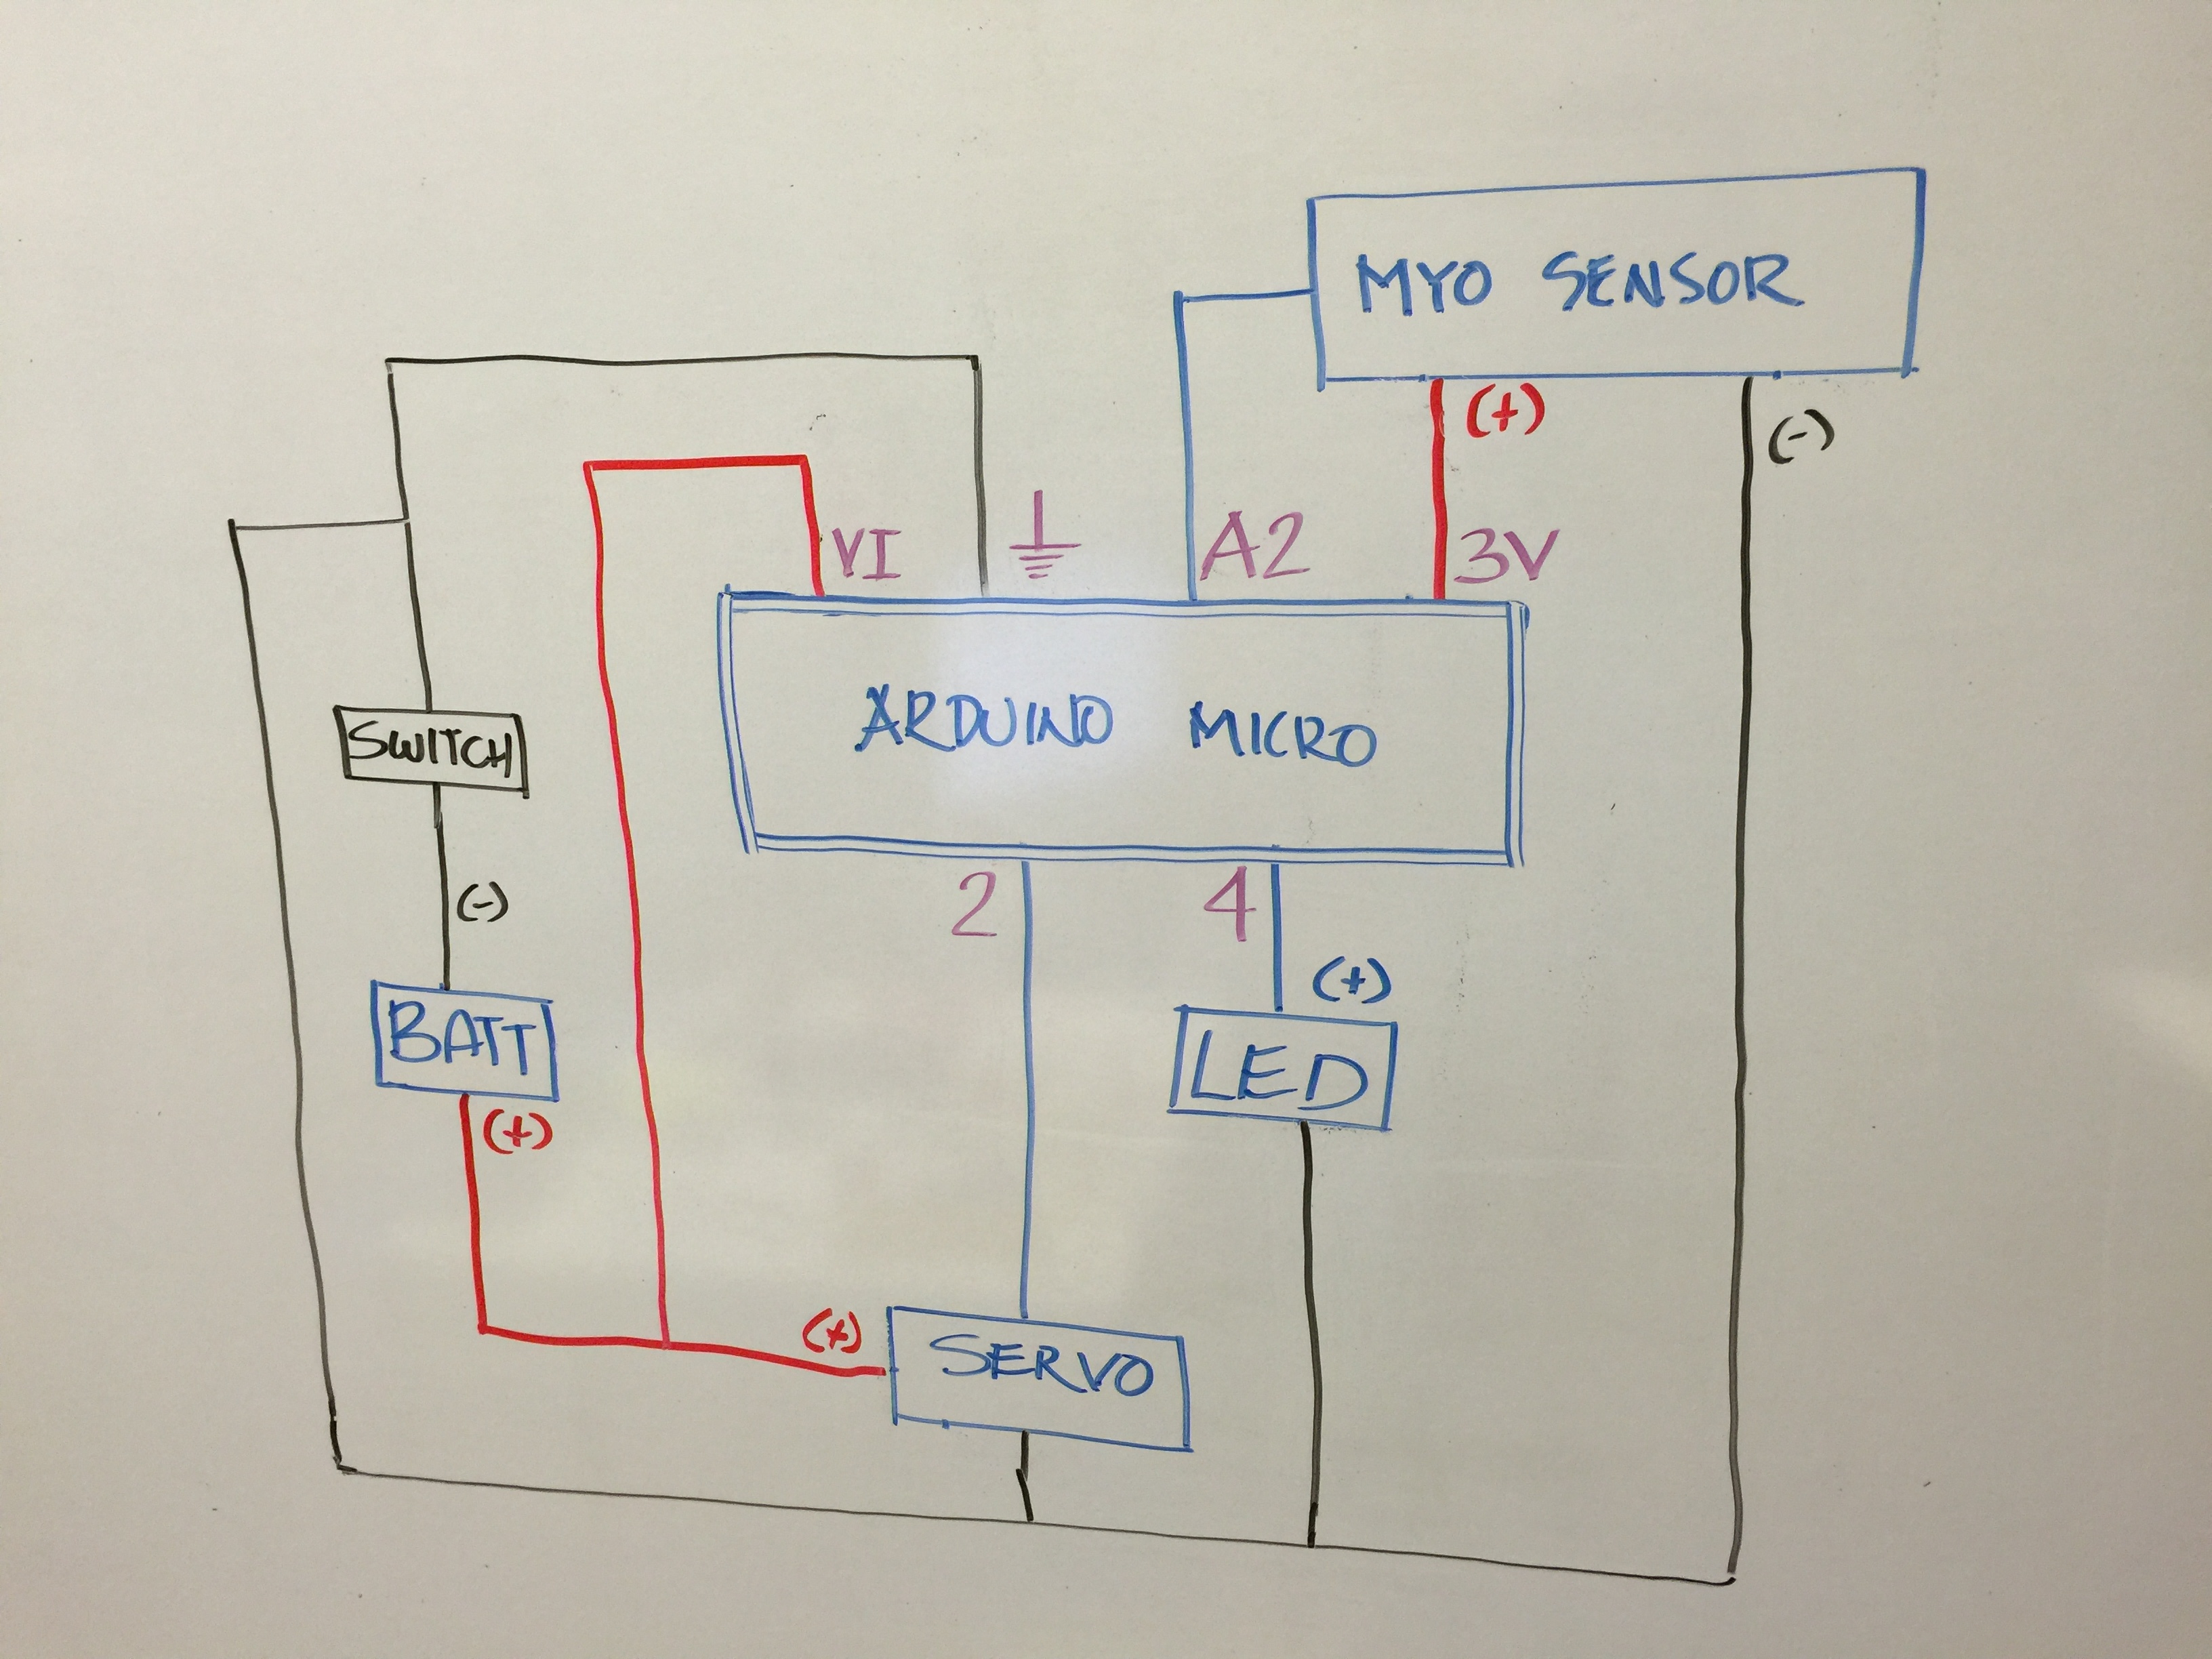 MYO SENSOR
(+)
(-)
VI
A2
3V
ARDUINO MICRO
SWITCH
2
4
(-)
(+)
BATT
LED
(+)
(+)
SERVO